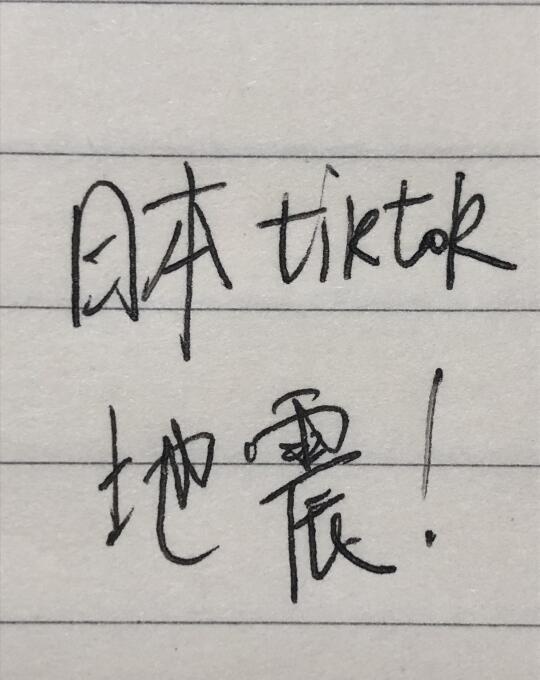 日本 tiktok
地震!